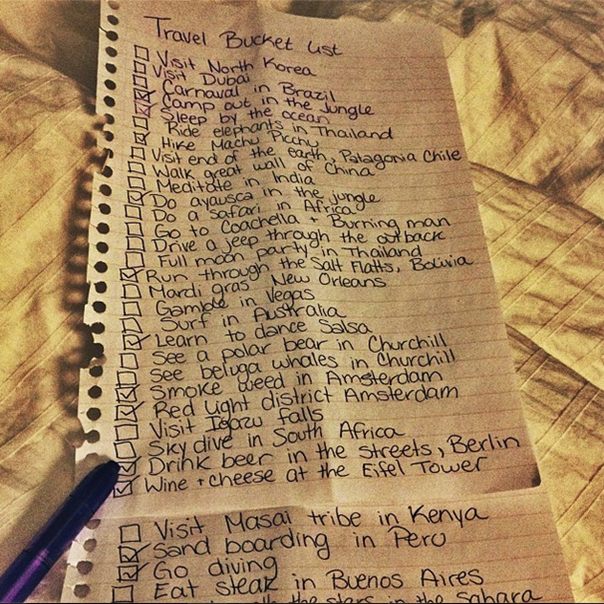 Travel Bucket list
Visit North Korea
Visit Dubai
Carnaval in Brazil
Camp out in the jungle
Sleep by the ocean
Ride elephants in Thailand
Hike Machu Picchu
Visit end of the earth, Patagonia Chile
Walk great wall of China
Meditate in India
Do ayausca in the jungle
Do a safari in Africa
Go to Coachella + Burning man
Drive a jeep through the outback
Full moon party in Thailand
Run through the Salt Flatts, Bolivia
Mardi gras New Orleans
Gamble in Vegas
Surf in Australia
Learn to dance Salsa
See a polar bear in Churchill
See beluga whales in Churchill
Smoke weed in Amsterdam
Red light district Amsterdam
Visit Igazu falls
Sky dive in South Africa
Drink beer in the streets, Berlin
Wine + cheese at the Eifel Tower
Visit Masai tribe in Kenya
Sand boarding in Peru
Go diving
Eat steak in Buenos Aires
the stars in the sahara